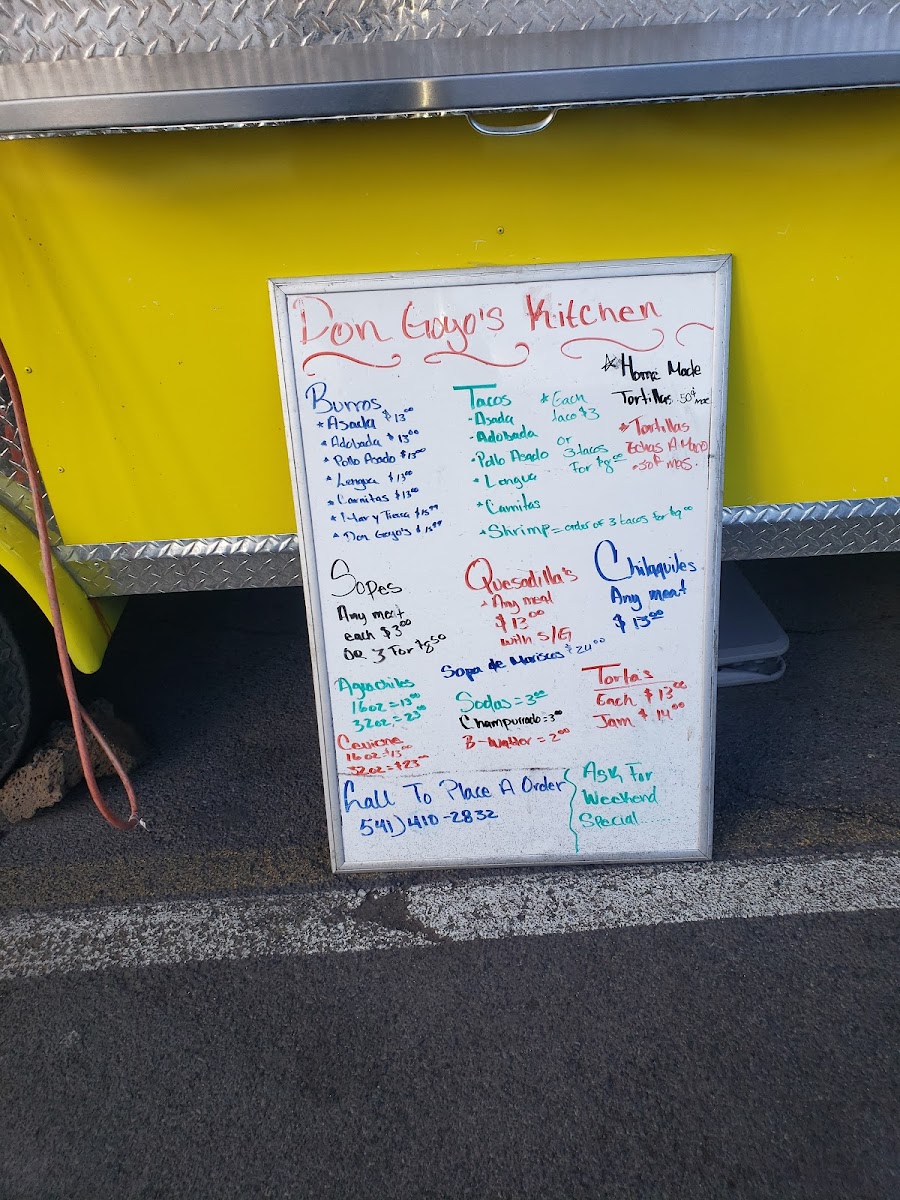 Don Goyo's Kitchen
* Home Made
Tortillas .50¢ mas
* Tortillas
Echas A Mano
.50¢ mas.
Burros
* Asada $13.00
* Adobada $13.00
* Pollo Asado $13.00
* Lengua $13.00
* Carnitas $13.00
* Mar y Tierra
* Don Goyo's
Tacos
- Asada
- Adobada
- Pollo Asado
- Lengua
- Carnitas
* Shrimp = order of 3 tacos for $9.00
* Each
taco $3
or
3 tacos
For $8.00
Sopes
Any meat
each $3.00
Or 3 For $8.50
Quesadilla's
* Any meat
$13.00
with S/G
Chilaquiles
Any meat
$13.00
Sopa de Mariscos $20.00
Aguachiles
16oz = 13.00
32oz = 23.00
Ceviche
16oz = $13.00
32oz = $23.00
Sodas = 3.00
Champurrado = 3.00
B-Watter = 2.00
Torta's
Each $13.00
Jam $14.00
Call To Place A Order
541) 410-2832
Ask For
Weekend
Special......